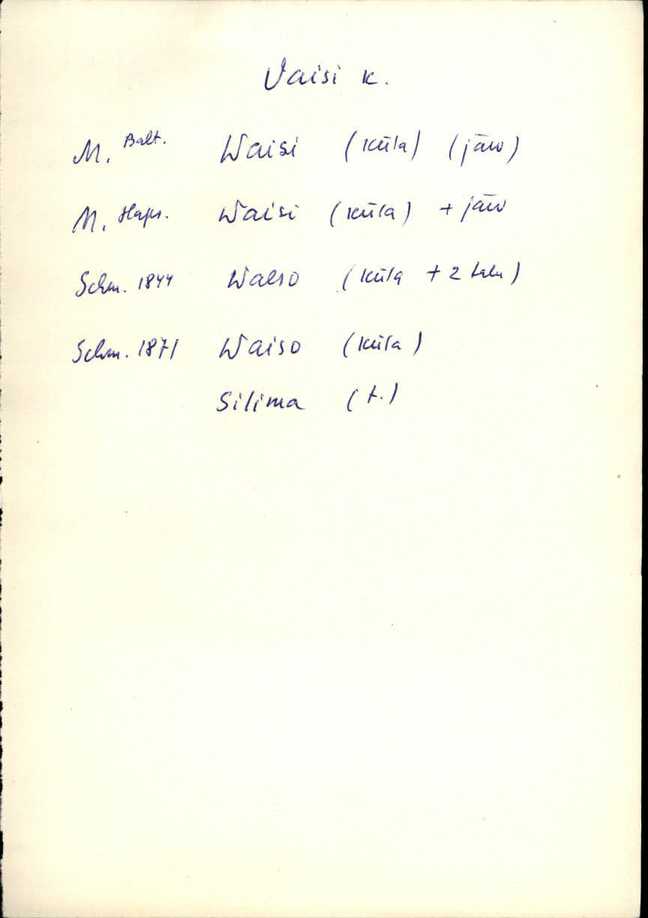 Vaisi k.
M. Balt. Waisi (küla) (järv)
M. Haps. Waisi (küla) + järv
Schm. 1844 Walso (küla + 2 talu)
Schm. 1871 Waiso (küla)
Silima (t.)